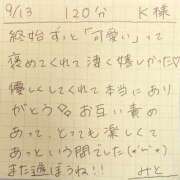 9/13 120分 K様
終始ずっと「可愛い」って
褒めてくれて凄く嬉しかった♡
優しくしてくれて本当にあり
がとう😊お互い責め
あって とっても楽しくて
あっという間でした(⁎˃ᴗ˂⁎)
また遊ぼうね!! みと